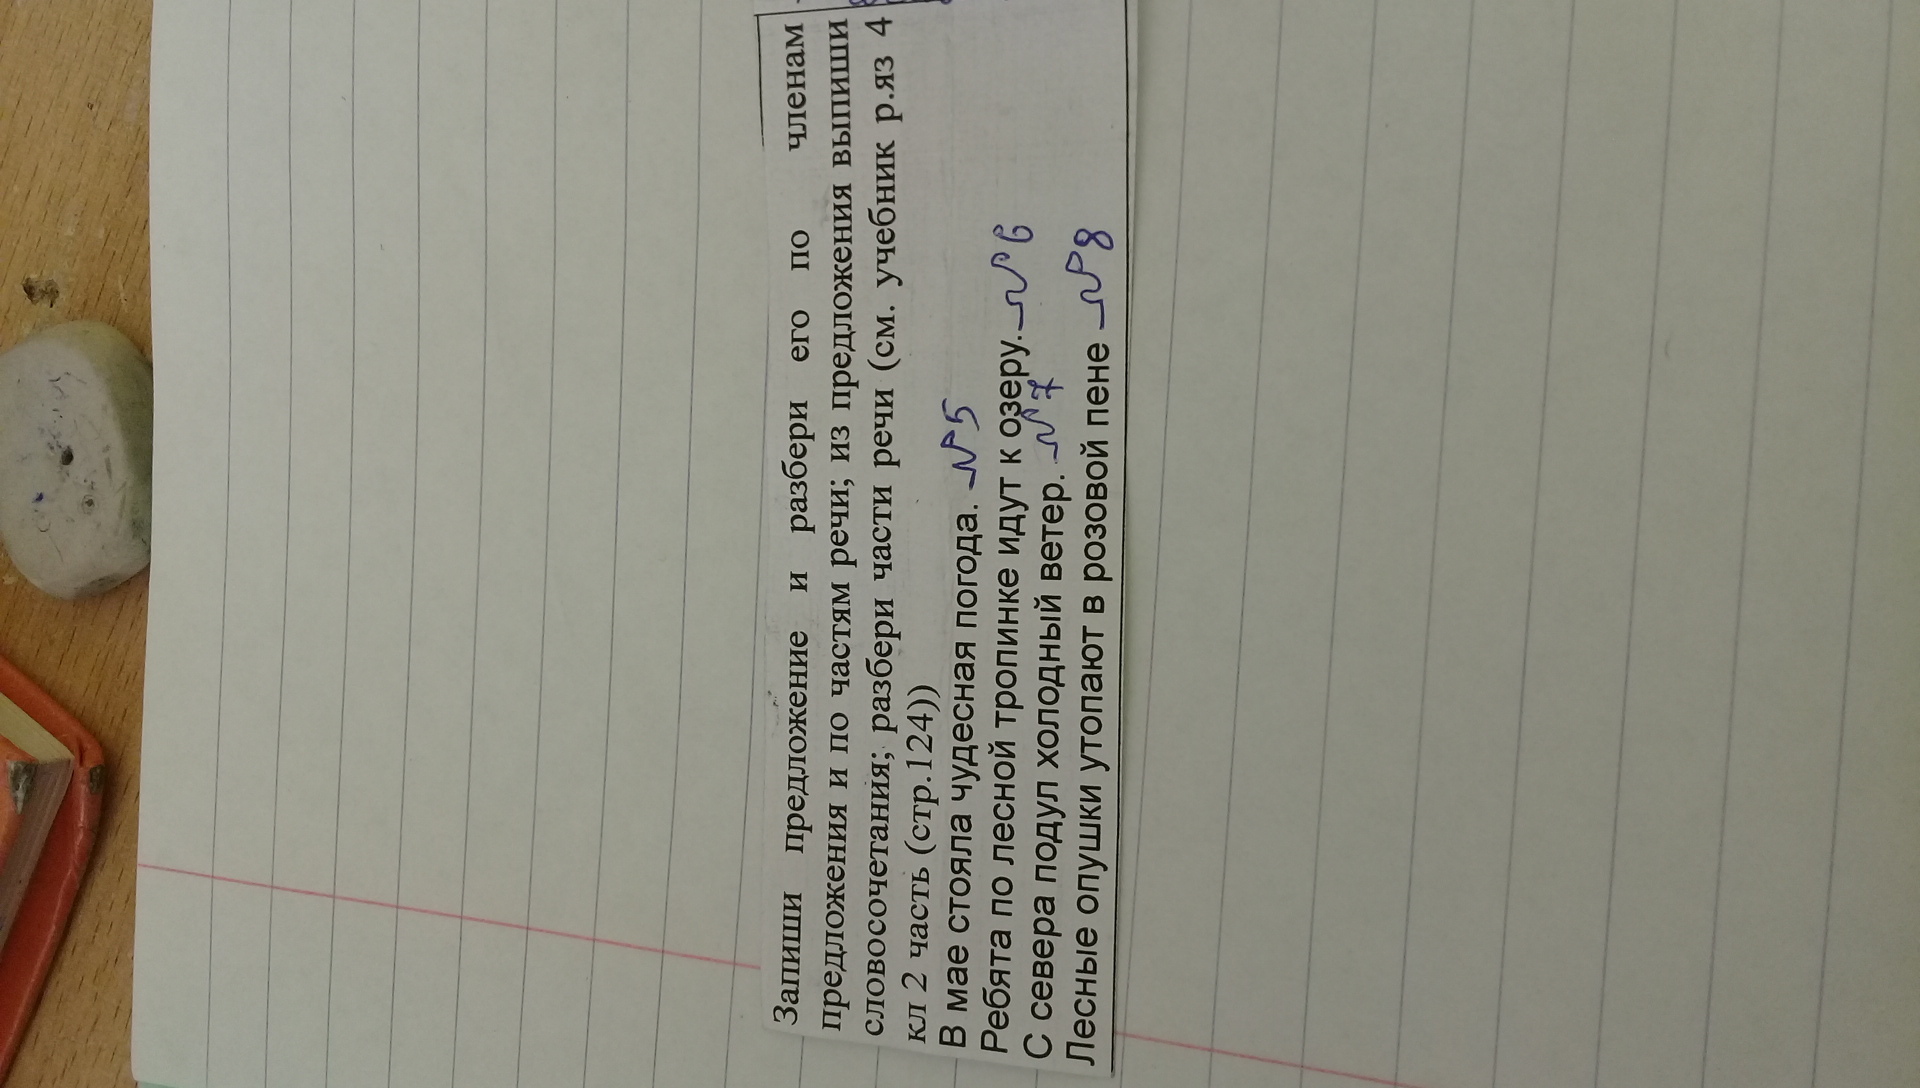 Запиши предложение и разбери его по членам
предложения и по частям речи; из предложения выпиши
словосочетания; разбери части речи (см. учебник р.яз 4
кл 2 часть (стр.124))
В мае стояла чудесная погода. -№5
Ребята по лесной тропинке идут к озеру. -№6
С севера подул холодный ветер. -№7
Лесные опушки утопают в розовой пене -№8